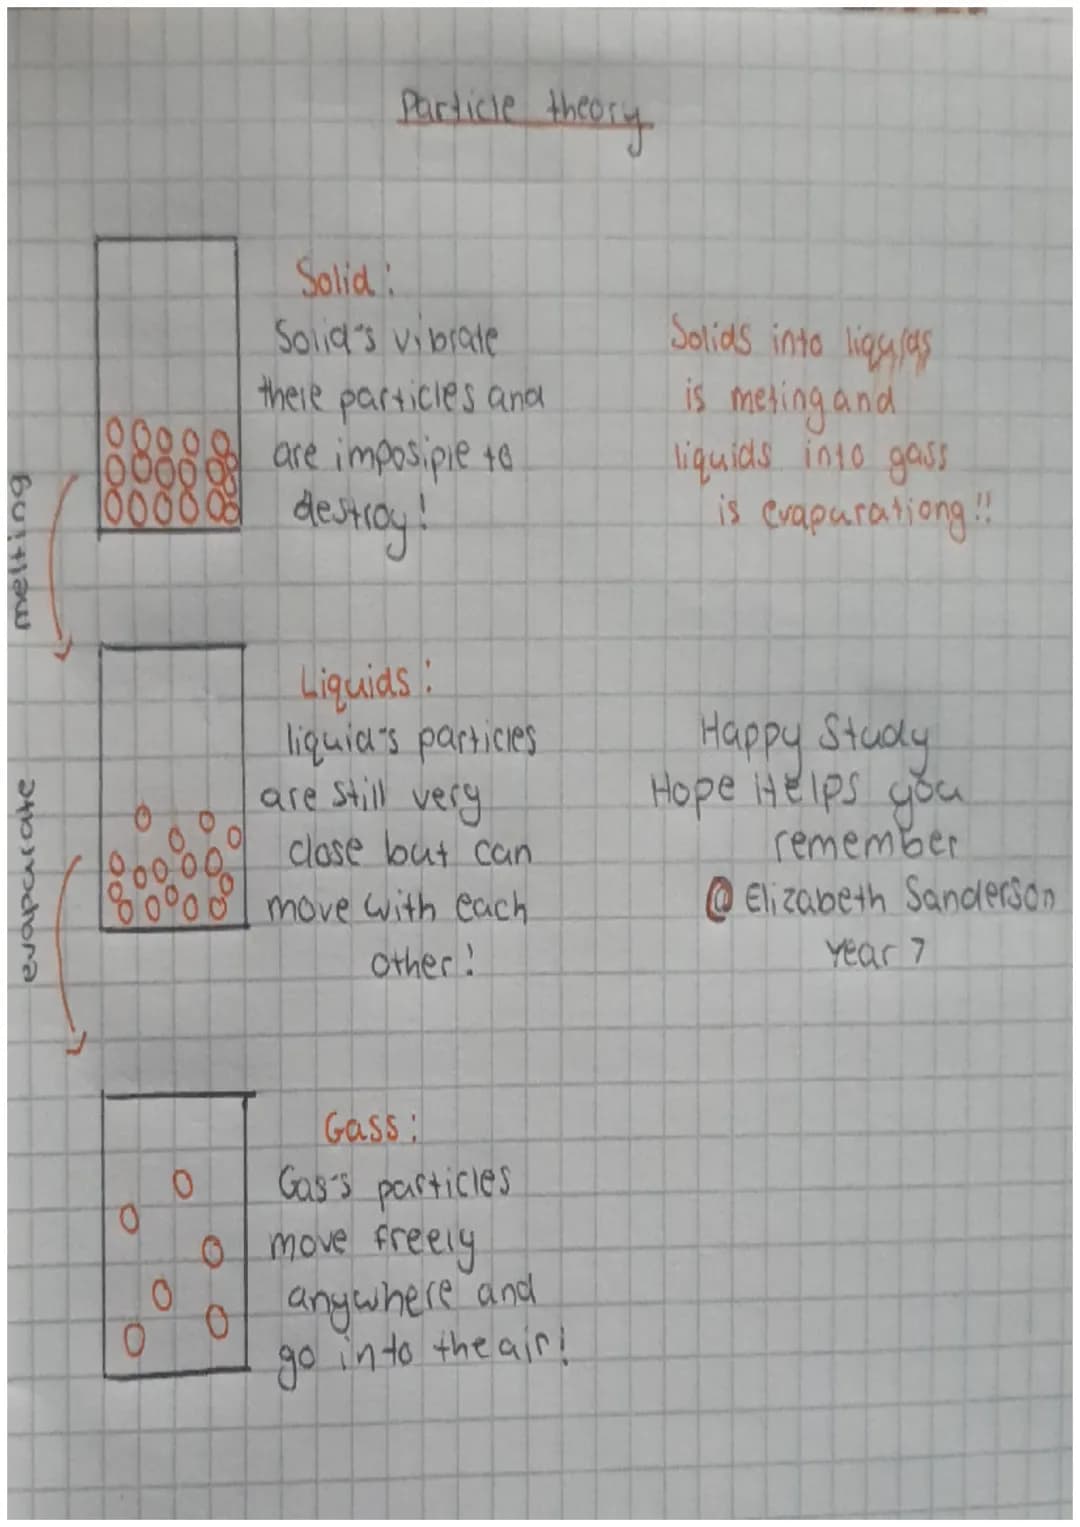 Particle theory
Solid:
Solid's vibrate
there particles and
are imposiple to
destroy!
Solids into liquids
is meting and
liquids into gass
is evaparationg!!
melting
Liquids:
liquid's particles
are still very
close but can
move with each
other!
Happy Study
Hope it Helps you
remember
@ Elizabeth Sanderson
Year 7
evaparate
Gass:
Gas's particles
move freely
anywhere and
go into the air!